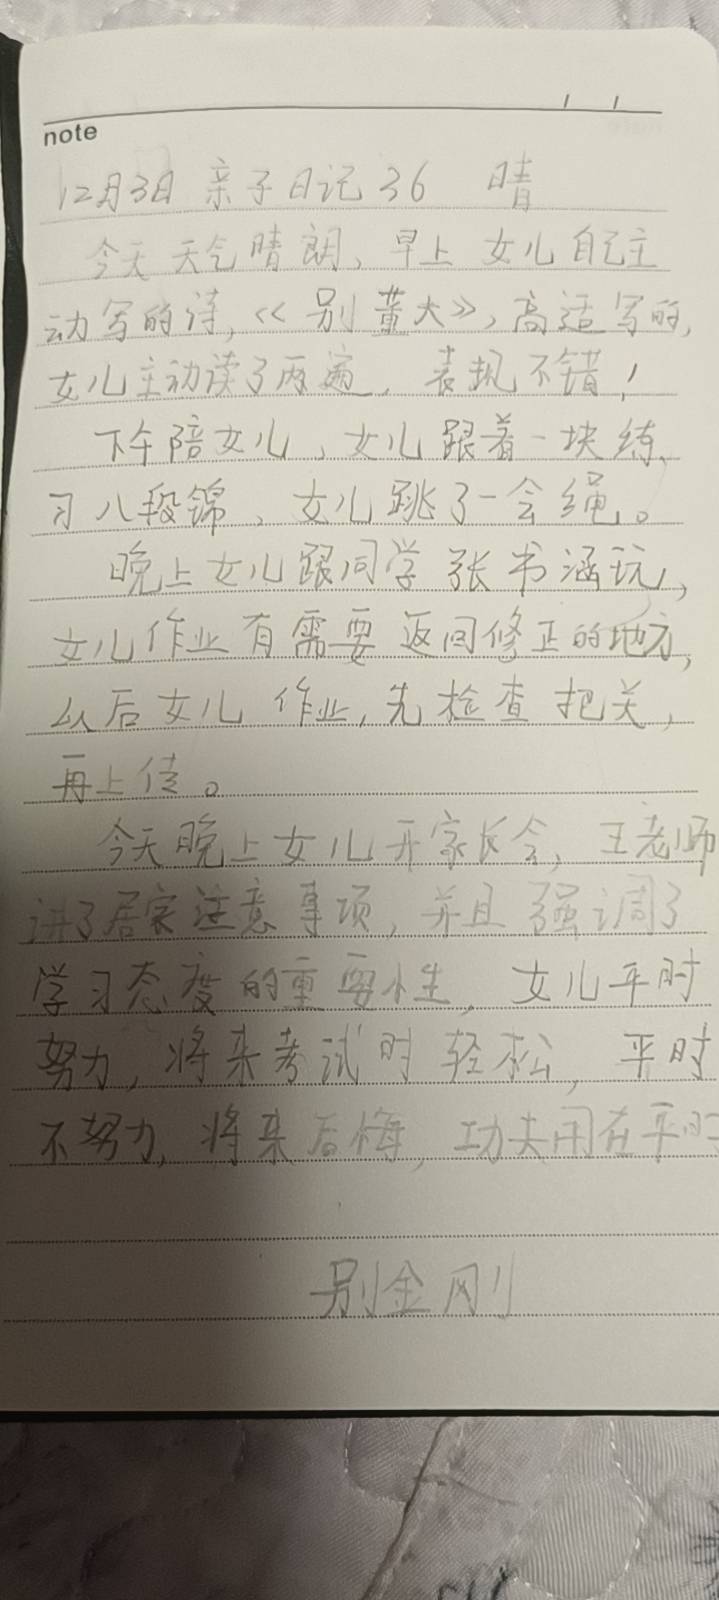 note
12月3日 亲子日记36 晴
今天天气晴朗、早上 女儿自己主
动写的诗,《别董大》,高适写的,
女儿主动读了两遍,表现不错!
下午陪女儿,女儿跟着一块练
习八段锦、女儿跳了一会绳。
晚上女儿跟同学张书涵玩,
女儿作业有需要返回修正的地方,
以后女儿作业,先检查把关,
再上传。
今天晚上女儿开家长会,王老师
讲了居家注意事项,并且强调了
学习态度的重要性,女儿平时
努力,将来考试时轻松,平时
不努力,将来后悔,功夫用在平时
别金刚